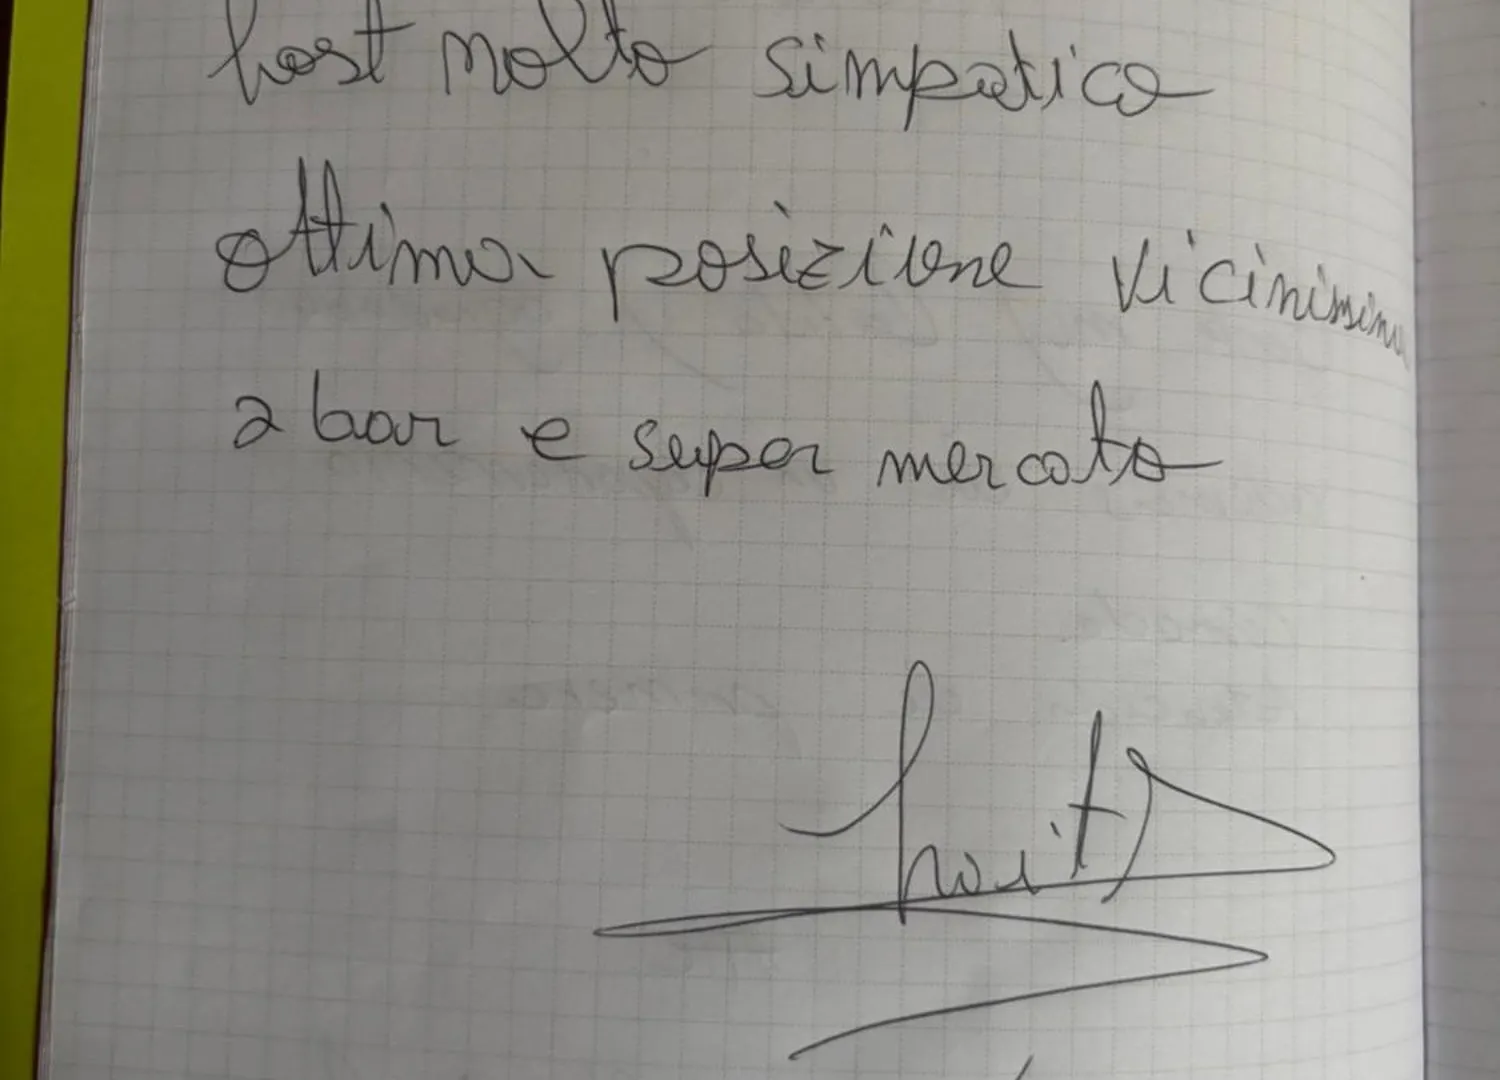 host molto simpatico
ottima posizione vicinissimo
a bar e super mercato